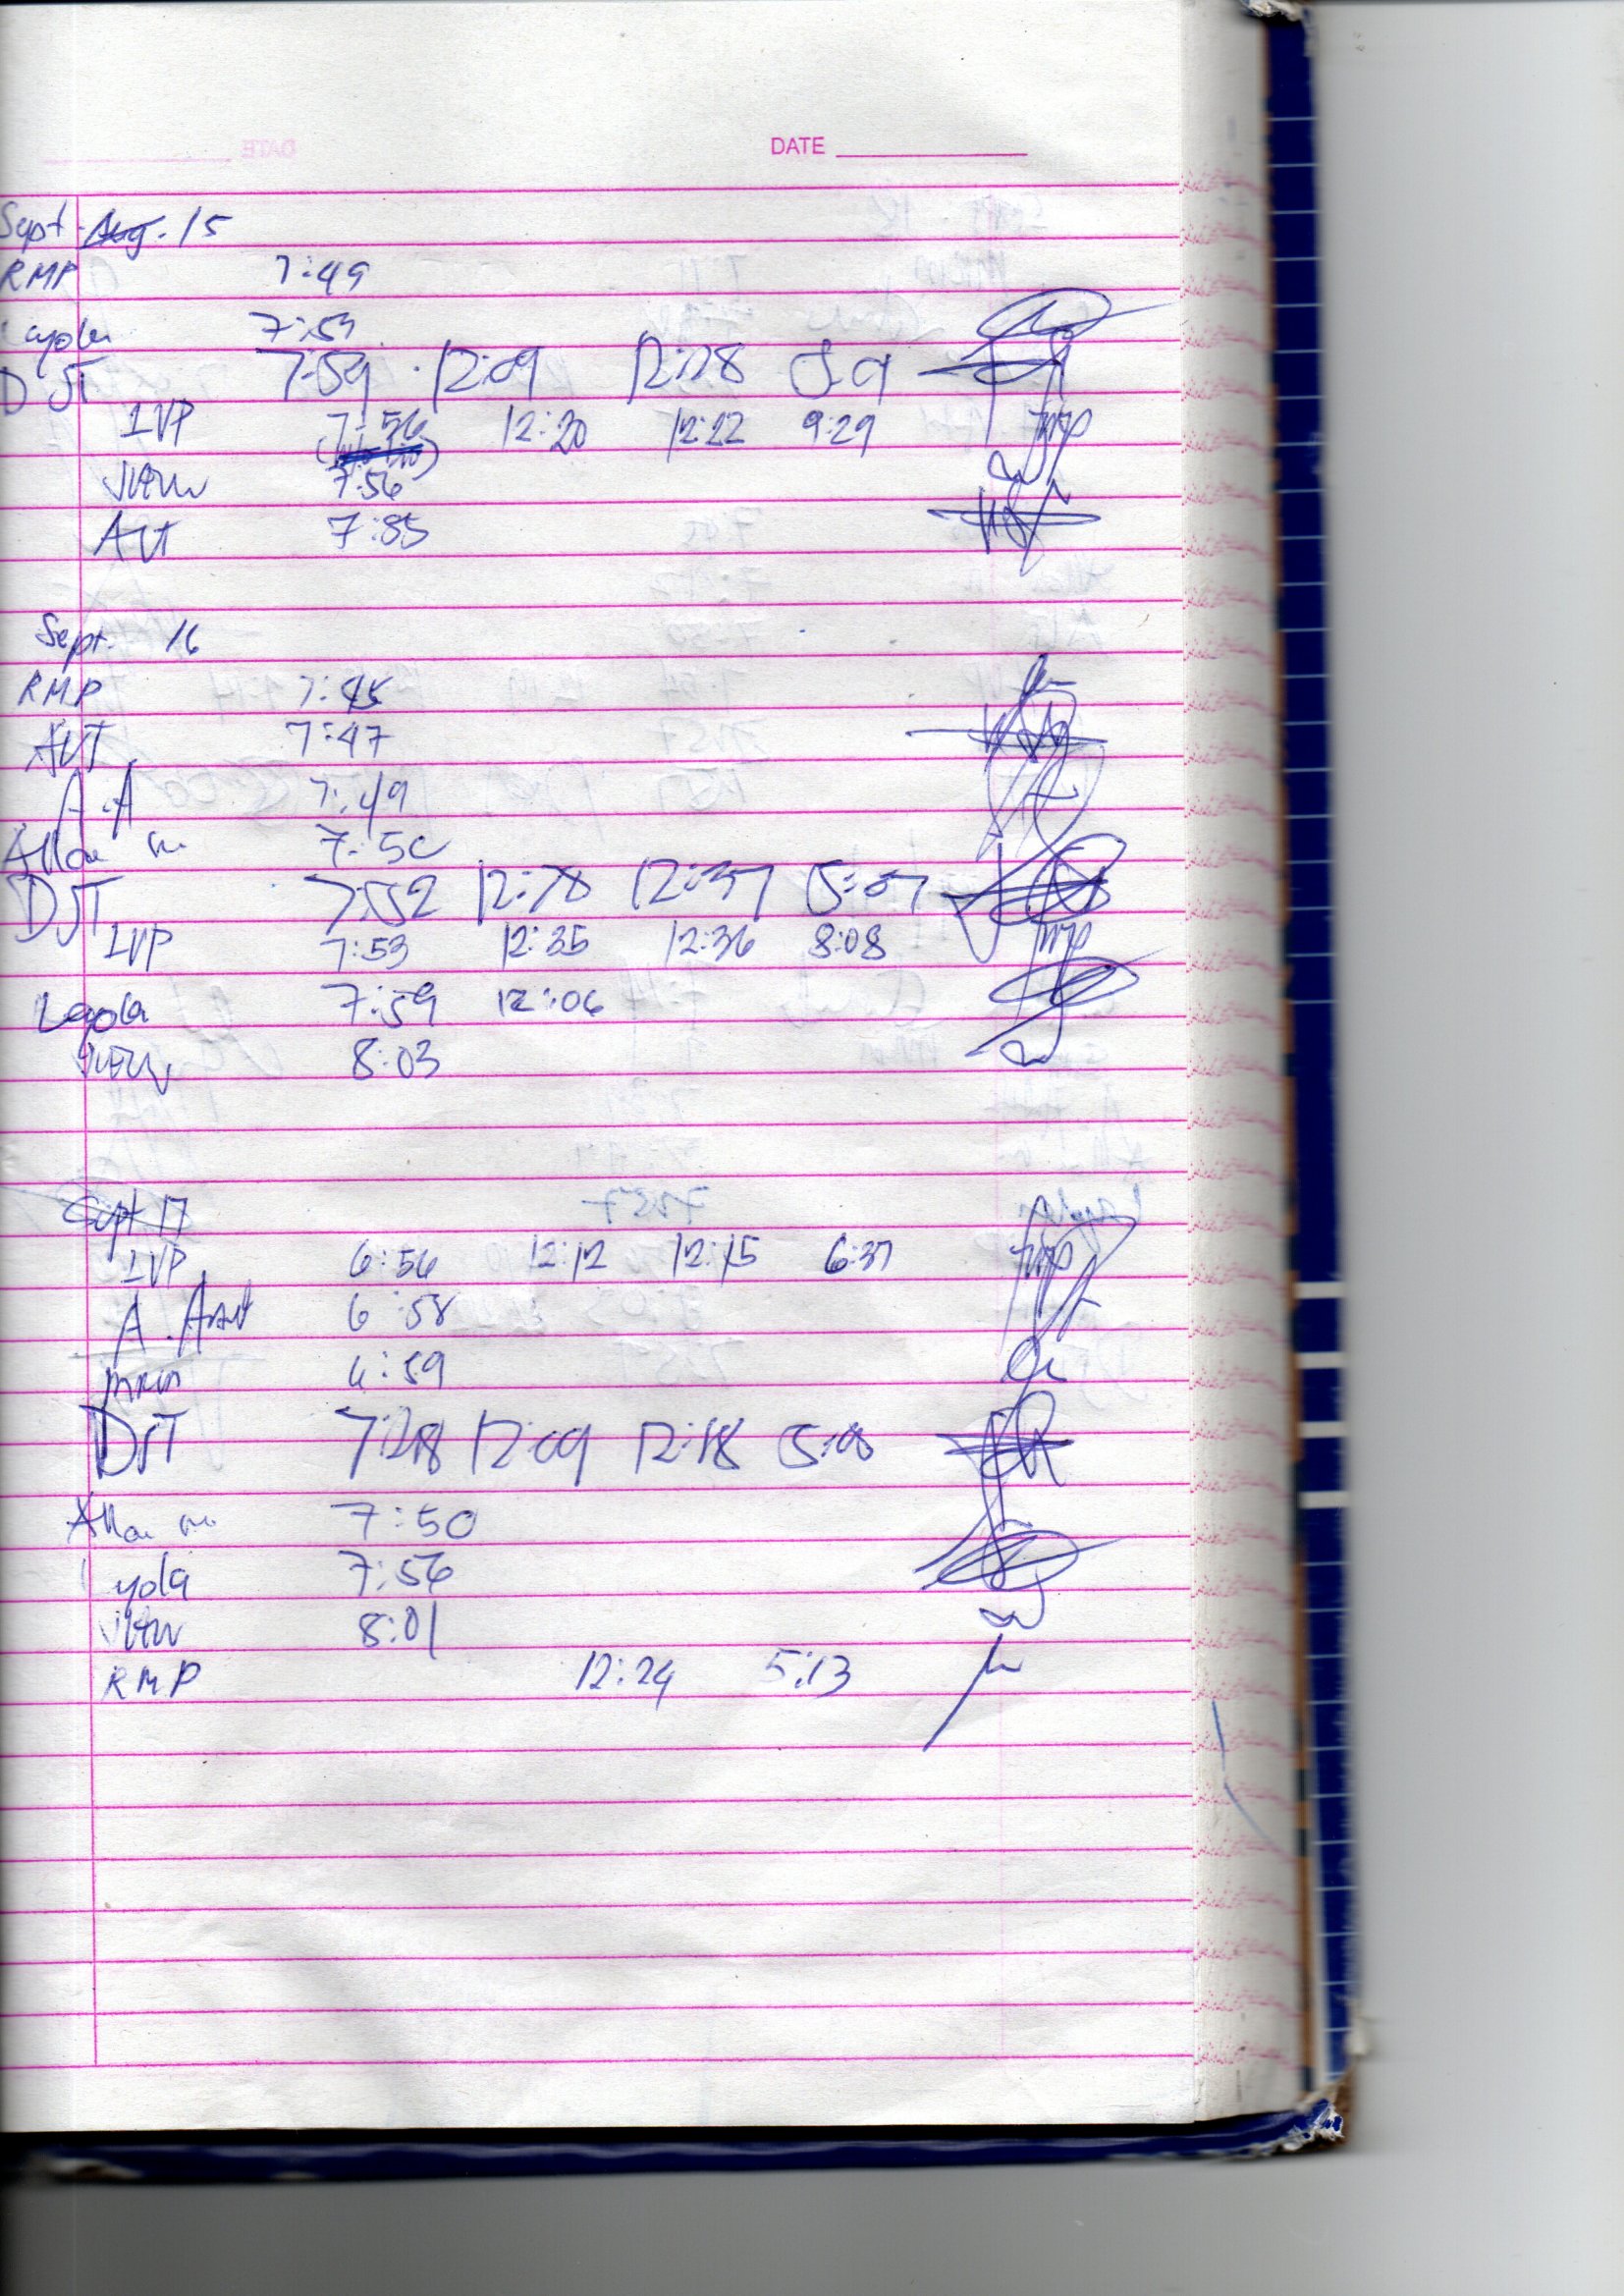 DATE
Sept Aug. 15
RMP 7:49
7:59
DJT 7:59 12:09 12:28
LVP 7:56 12:20 12:22 9:29
7:56
AVT 7:85
Sept. 16
RMP 7:45
AVT 7:47
A.A 7:49
Allan m 7:50
DJT 7:52 12:28 12:37 5:07
LVP 7:53 12:35 12:36 8:08
Loyola 7:59 12:06
8:03
Sept 17
LVP 6:56 12:12 12:15 6:37
A. 6:58
6:59
DJT 7:28 12:09 12:18 5:08
Allan m 7:50
yola 7:56
8:01
RMP 12:24 5:13